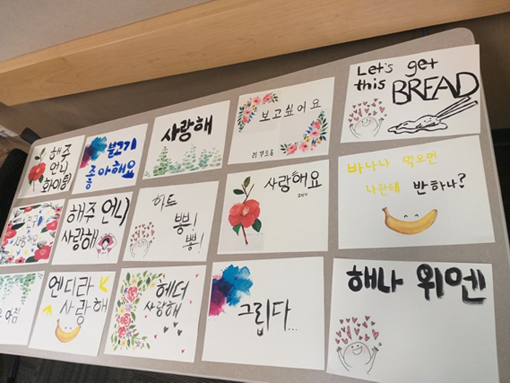 해주
언니
화이팅
불고기
좋아해요
사랑해
보고싶어요
Let's get
this BREAD
해주 언니
사랑해
하트
뿅!
뿅!
사랑해요
바나나 먹으면
나한테 반하나?
엔디라
사랑해
헤더
사랑해
그립다...
해나 위멘